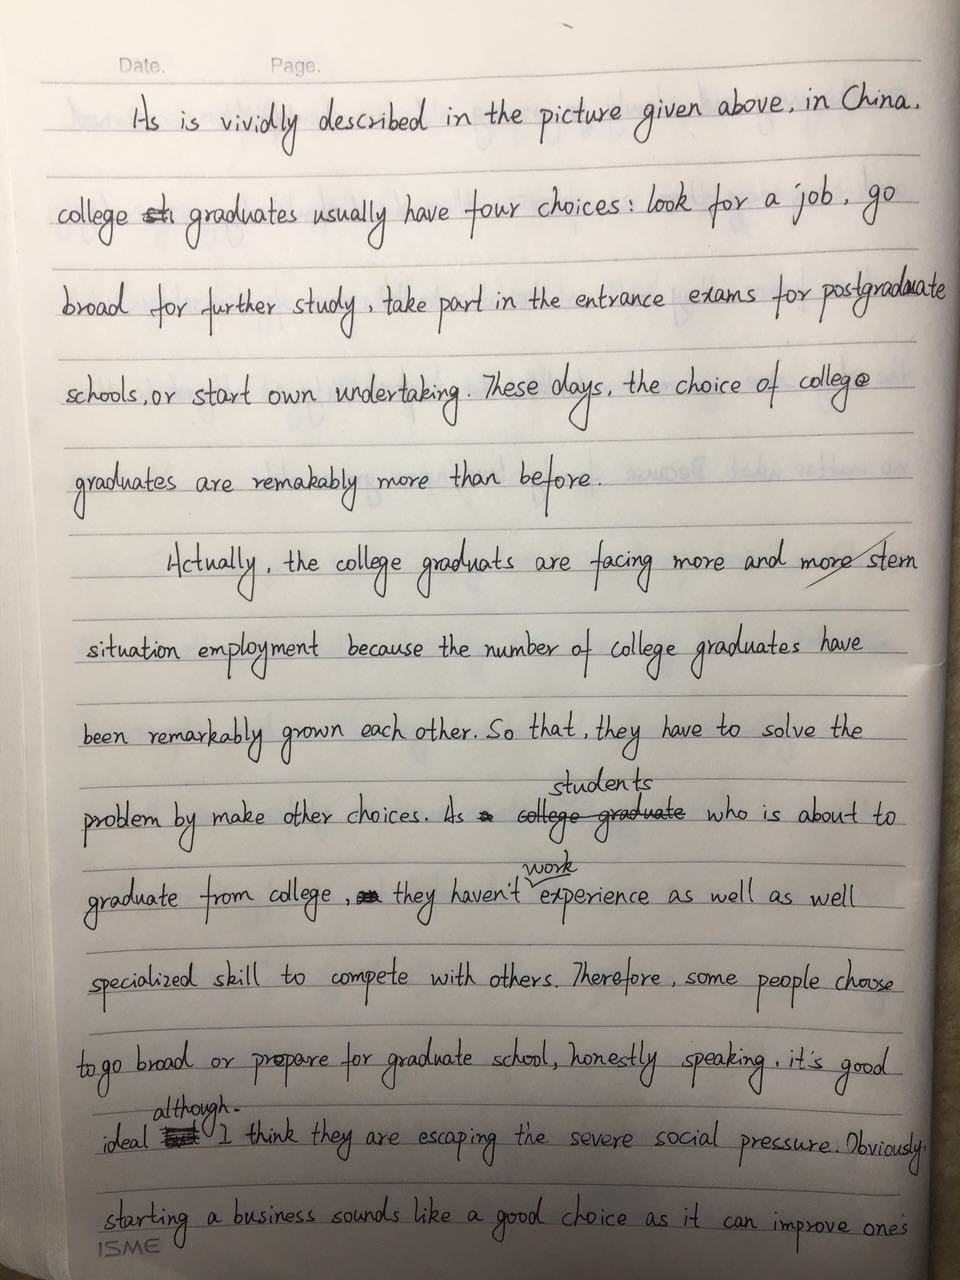 Date. Page.
As is vividly described in the picture given above, in China,
college graduates usually have four choices: look for a job, go
broad for further study, take part in the entrance exams for postgraduate
schools, or start own undertaking. These days, the choice of college
graduates are remakably more than before.
Actually, the college graduats are facing more and more stern
situation employment because the number of college graduates have
been remarkably grown each other. So that, they have to solve the
students
problem by make other choices. As a college graduate who is about to
work
graduate from college, they haven't experience as well as well
specialized skill to compete with others. Therefore, some people choose
to go broad or prepare for graduate school, honestly speaking, it's good
although.
ideal I think they are escaping the severe social pressure. Obviously,
starting a business sounds like a good choice as it can improve one's
ISME